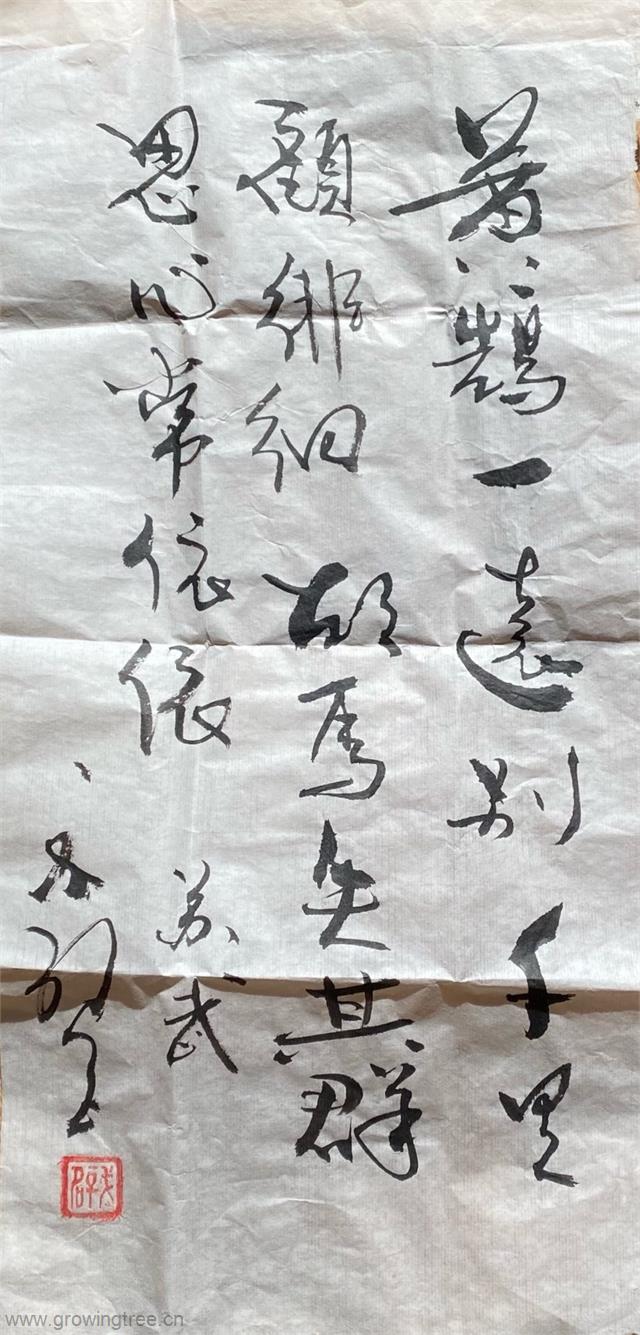 黄鵠一遠别千里
顧徘徊胡馬失其群
思心常依依苏武
www.growingtree.cn